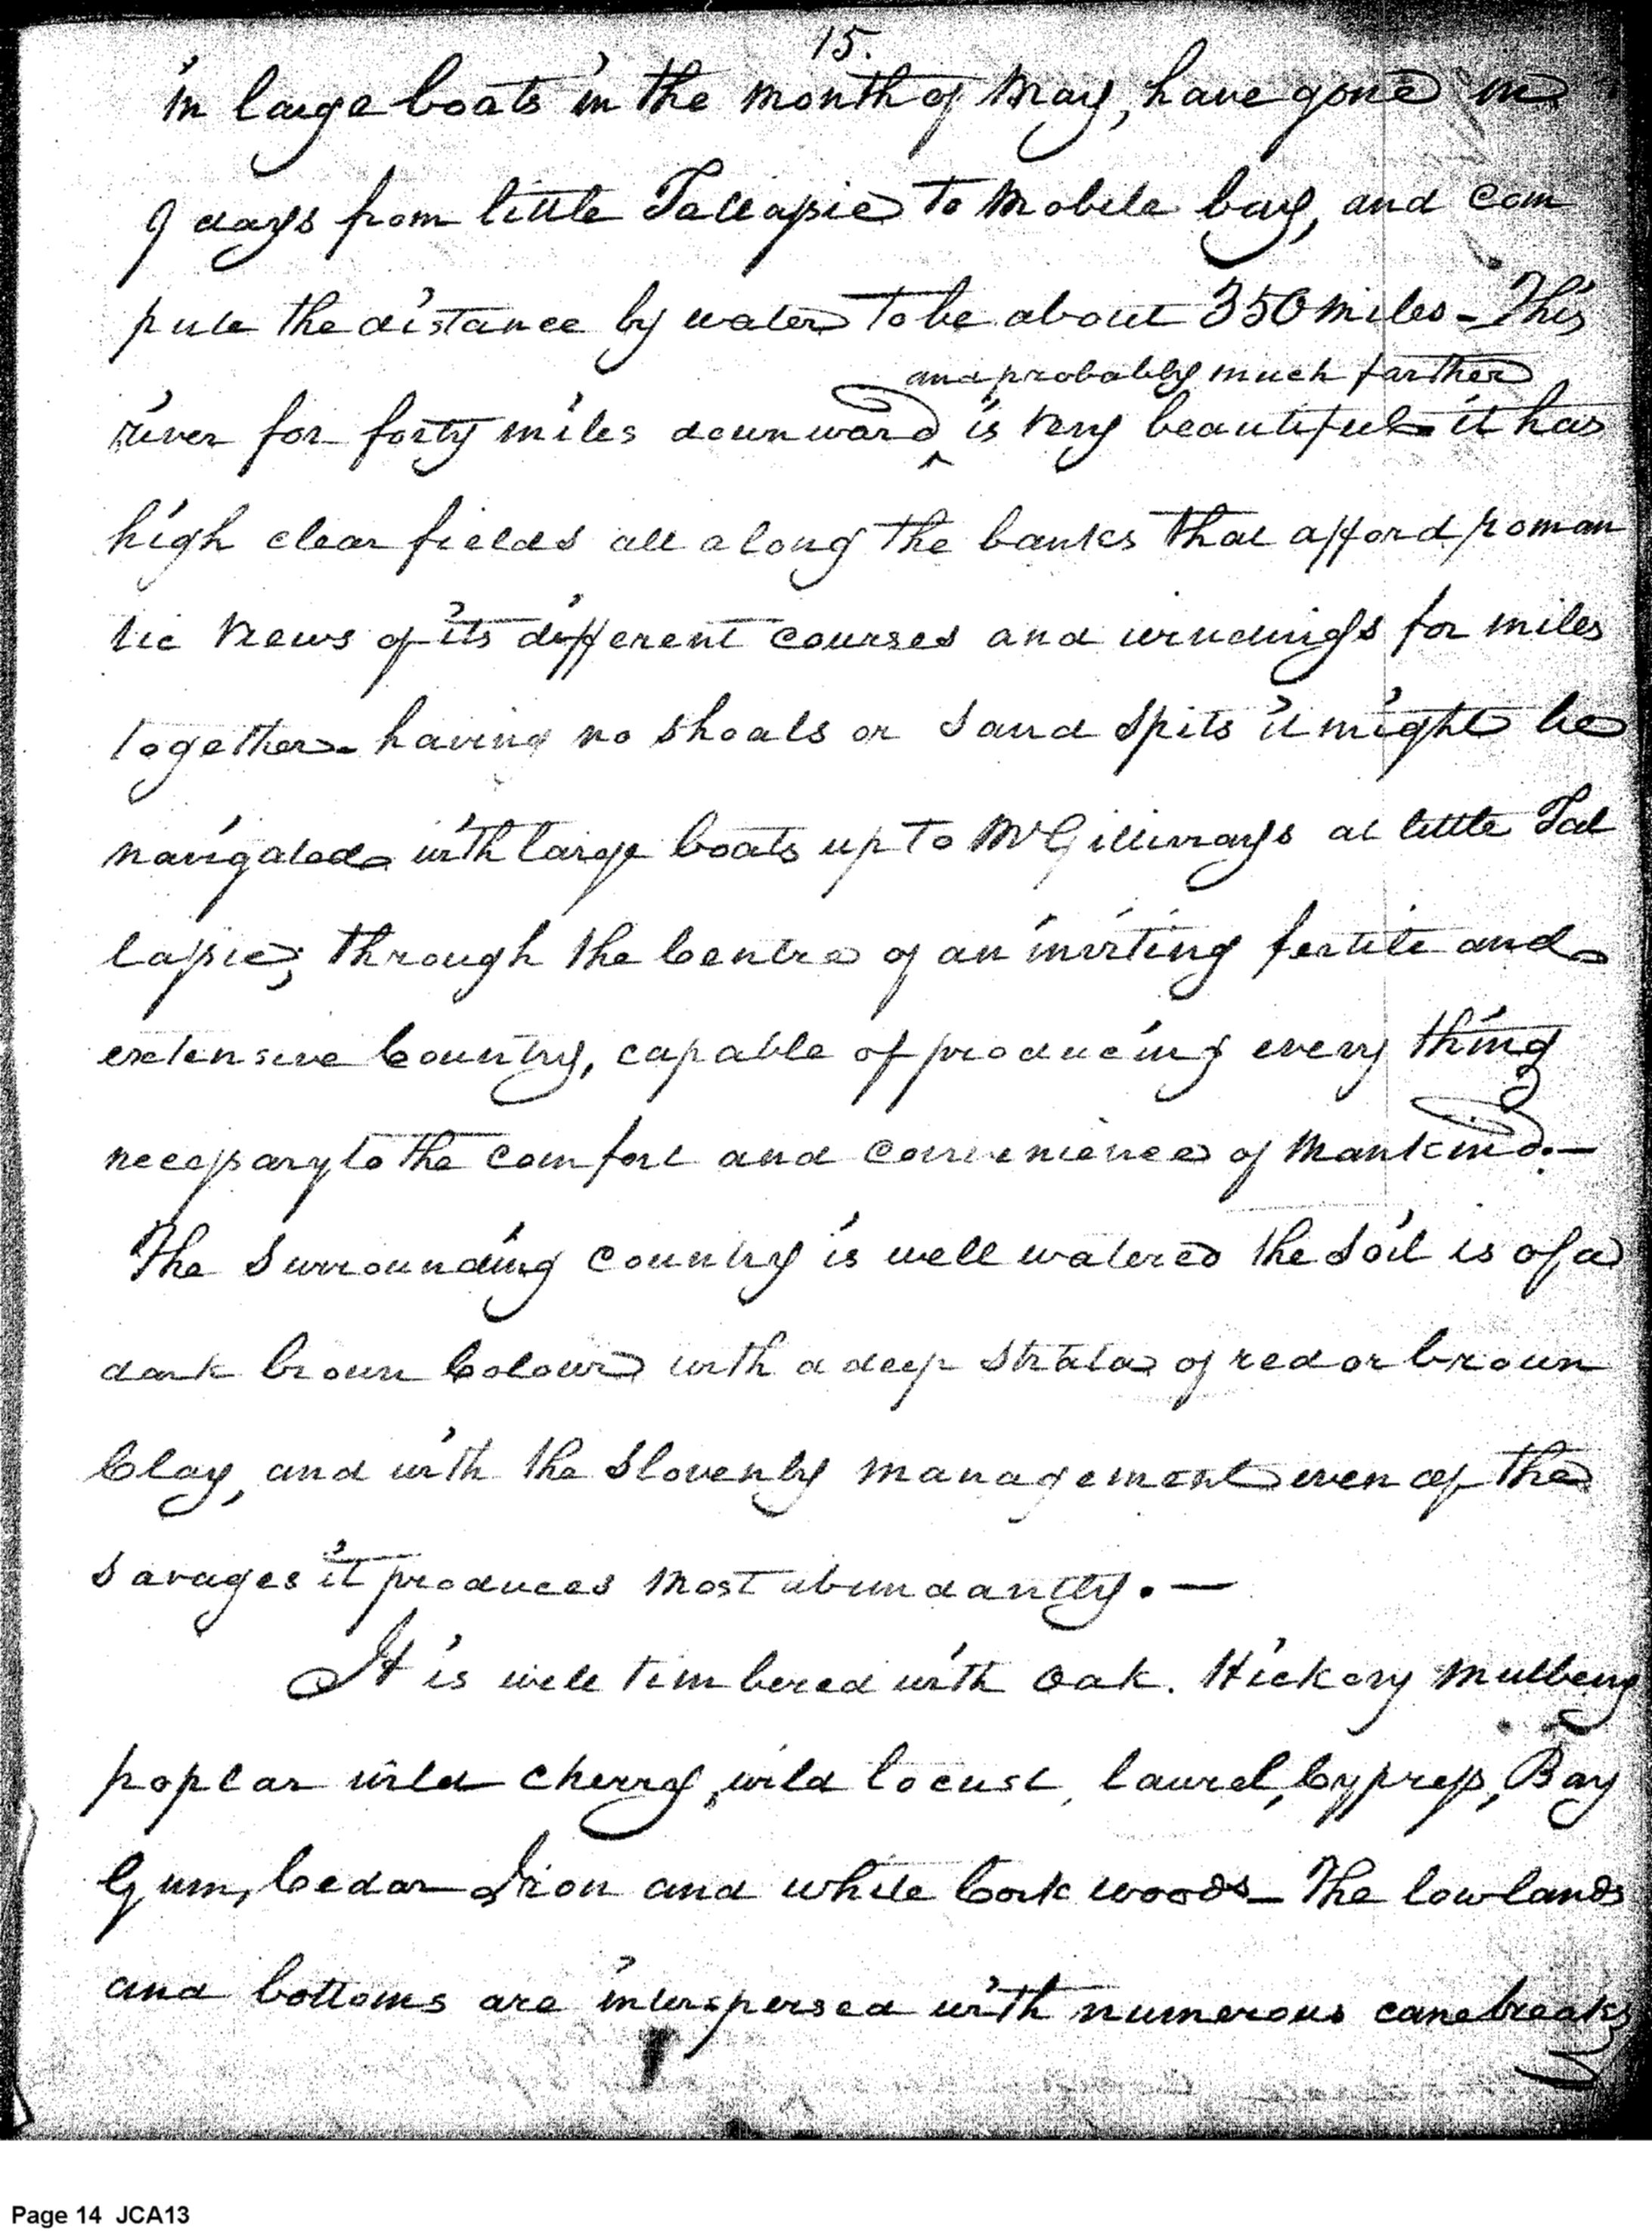 15.
in large boats in the month of May, have gone in
9 days from little Tallapie to Mobile bay, and com
pute the distance by water to be about 350 miles - This
and probably much farther
river for forty miles downward ^ is very beautiful - it has
high clear fields all along the banks that afford roman
tic views of its different courses and windings for miles
together - having no shoals or sand spits it might be
navigated with large boats up to McGillivrays at little Tal
lapie; through the Centre of an inviting fertile and
extensive Country, capable of producing every thing
necessary to the comfort and convenience of Mankind. —
The surrounding country is well watered the soil is of a
dark brown Colour with a deep strata of red or brown
Clay, and with the slovenly management even of the
savages it produces most abundantly. —
It is well timbered with Oak. Hickory Mulberry
poplar wild cherry, wild locust, laurel, Cypress, Bay
Gum, Cedar Iron and white Cork woods - The lowlands
and bottoms are interspersed with numerous canebreaks
Page 14 JCA13